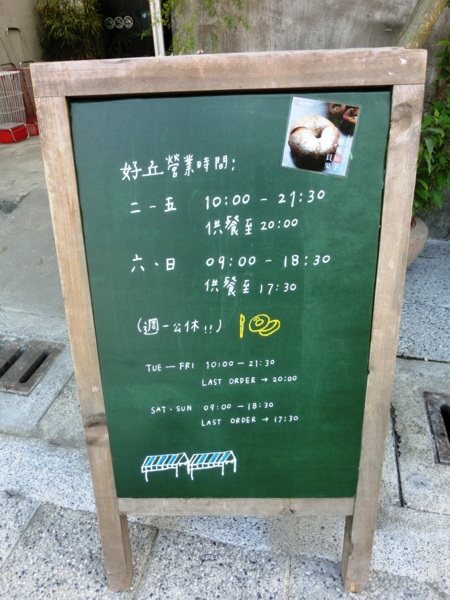 好丘營業時間：
二－五 10:00 - 21:30
供餐至 20:00
六、日 09:00 - 18:30
供餐至 17:30
(週一公休!!)
TUE — FRI 10:00 — 21:30
LAST ORDER → 20:00
SAT · SUN 09:00 — 18:30
LAST ORDER → 17:30